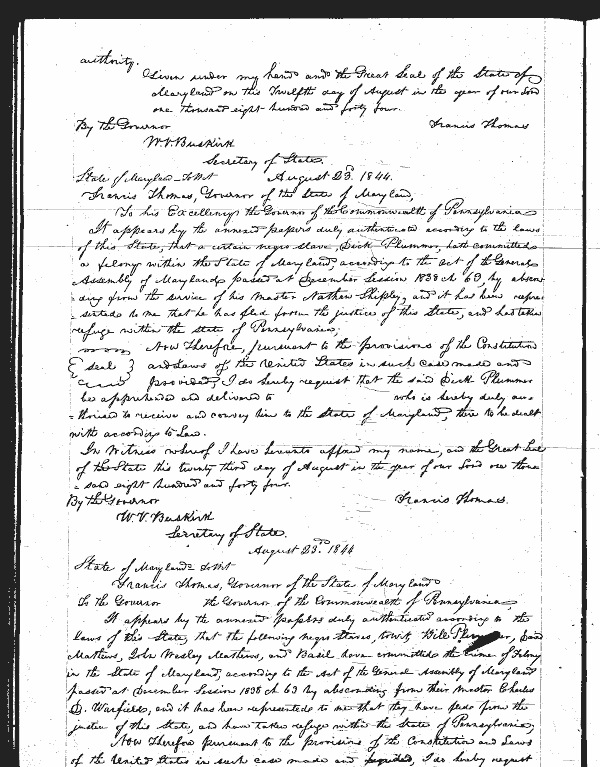 authority.
Given under my hand and the Great Seal of the State of
Maryland on this Twelfth day of August in the year of our Lord
one thousand eight hundred and forty four.
By the Governor Francis Thomas
W. V. Buskirk
Secretary of State.
State of Maryland To Wit August 23d. 1844.
Francis Thomas, Governor of the State of Maryland,
To his Excellency the Governor of the Commonwealth of Pennsylvania
It appears by the annexed papers duly authenticated according to the laws
of this State, that a certain negro slave, Dick Plummer, hath committed
a felony within the State of Maryland, according to the Act of the General
Assembly of Maryland passed at December Session 1838 ch 63, by abscon
ding from the service of his Master Nathan Shipley, and it has been repre
sented to me that he has fled from the justice of this State, and has taken
refuge within the State of Pennsylvania;
Now Therefore, pursuant to the provisions of the Constitution
{ seal } and Laws of the United States in such case made and
provided, I do hereby request that the said Dick Plummer
be apprehended and delivered to who is hereby duly au=
=thorised to receive and convey him to the State of Maryland, there to be dealt
with according to Law.
In Witness whereof I have hereunto affixed my name, and the Great Seal
of the State this twenty third day of August in the year of our Lord one thou
=sand eight hundred and forty four.
By the Governor Francis Thomas.
W. V. Buskirk
Secretary of State.
August 23d. 1844
State of Maryland To Wit
Francis Thomas, Governor of the State of Maryland
To the Governor the Governor of the Commonwealth of Pennsylvania
It appears by the annexed papers duly authenticated according to the
Laws of this State, that the following negro slaves, to wit, Bill
Mathews, John Wesley Mathews, and Basil have committed the crime of Felony
in the State of Maryland, according to the Act of the General Assembly of Maryland
passed at December Session 1838 ch 63 by absconding from their Master Charles
D. Warfield, and it has been represented to me that they have fled from the
justice of this State, and have taken refuge within the State of Pennsylvania;
Now Therefore pursuant to the provisions of the Constitution and Laws
of the United States in such case made and provided, I do hereby request